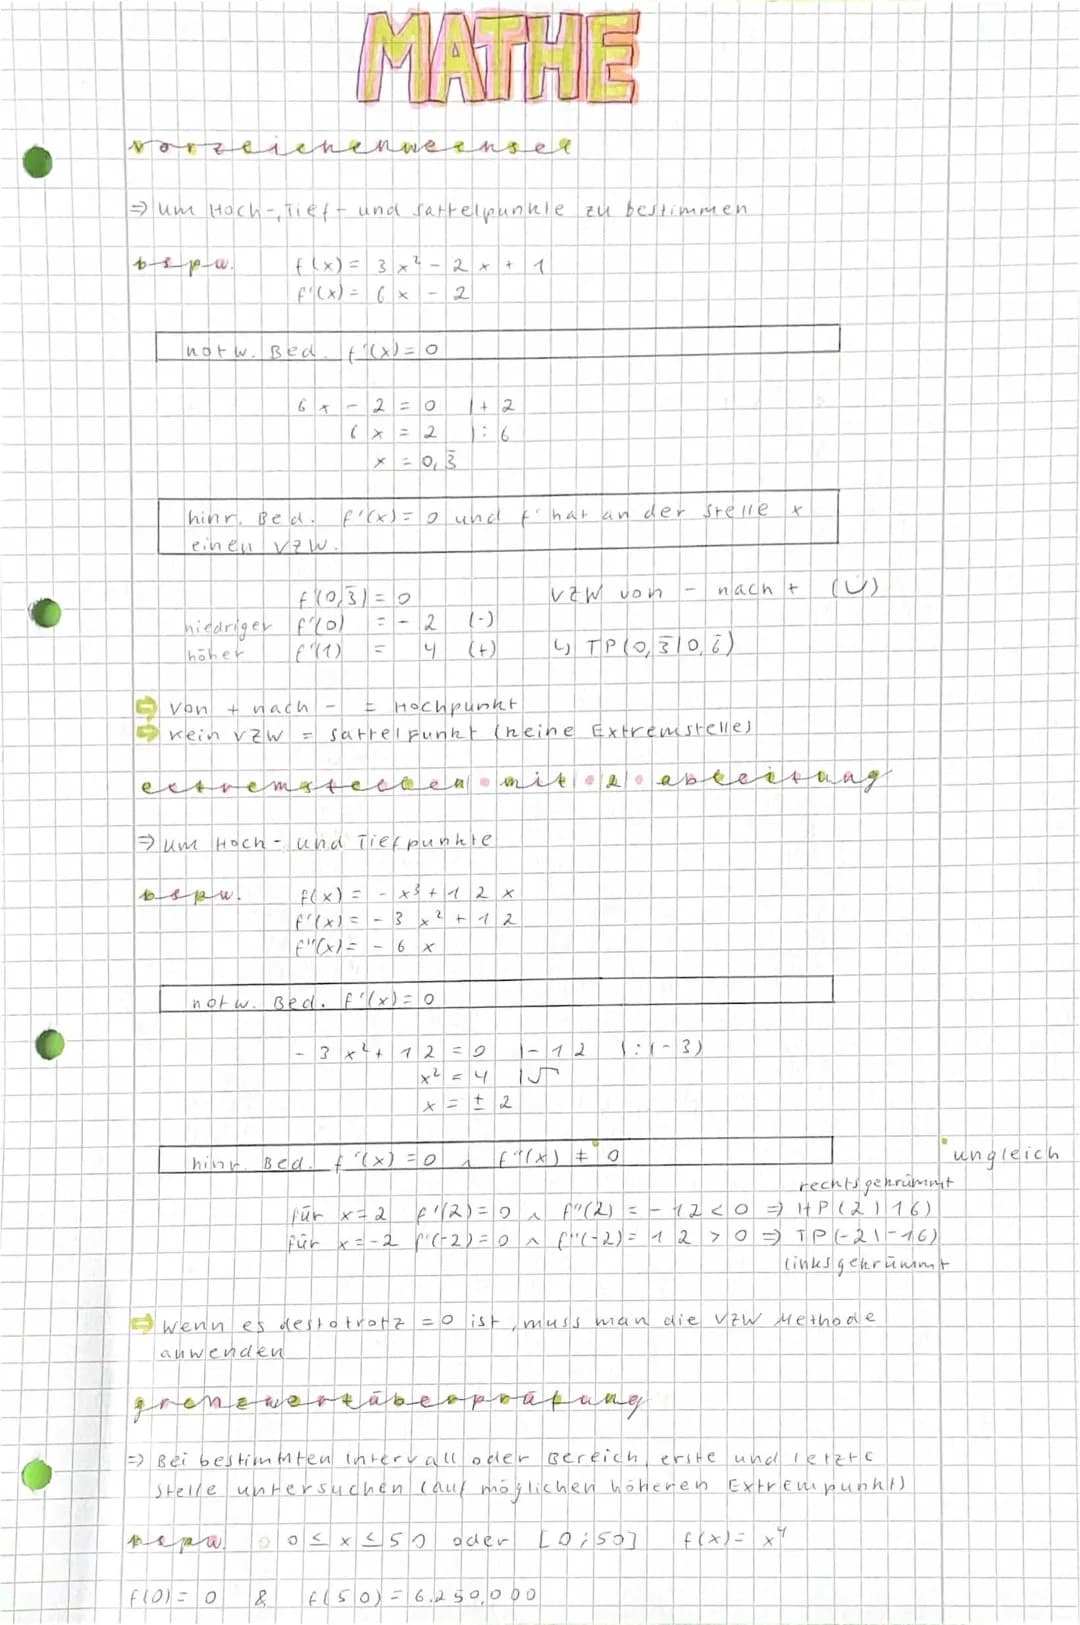 MATHE
vorzeichenwechsel
⇒ um Hoch-, Tief- und Sattelpunkte zu bestimmen
bspw. f(x) = 3x² - 2x + 1
f'(x) = 6x - 2
notw. Bed. f'(x) = 0
6x - 2 = 0 |+ 2
6x = 2 |: 6
x = 0,3̅
hinr. Bed. f'(x) = 0 und f' hat an der Stelle x
einen VZW.
f'(0,3̅) = 0 VZW von - nach + (U)
niedriger f'(0) = - 2 (-)
höher f'(1) = 4 (+) ↳ TP(0,3̅|0,6̅)
⇒ von + nach - = Hochpunkt
⇒ kein VZW = Sattelpunkt (keine Extremstelle)
extremstellen • mit • 2 • ableitung
⇒ um Hoch- und Tiefpunkte
bspw. f(x) = - x³ + 12x
f'(x) = - 3x² + 12
f''(x) = - 6x
notw. Bed. f'(x) = 0
- 3x² + 12 = 0 |- 12 |:(-3)
x² = 4 |√
x = ± 2
hinr. Bed. f'(x) = 0 ∧ f''(x) ≠ 0 ungleich
rechtsgekrümmt
für x = 2 f'(2) = 0 ∧ f''(2) = - 12 < 0 ⇒ HP(2|16)
für x = -2 f'(-2) = 0 ∧ f''(-2) = 12 > 0 ⇒ TP(-2|-16)
linksgekrümmt
⇒ Wenn es destotrotz = 0 ist, muss man die VZW Methode
anwenden
grenzwertüberprüfung
⇒ Bei bestimmten Intervall oder Bereich, erste und letzte
Stelle untersuchen (auf möglichen höheren Extrempunkt)
bspw. 0 ≤ x ≤ 50 oder [0;50] f(x) = x⁴
f(0) = 0 & f(50) = 6.250.000